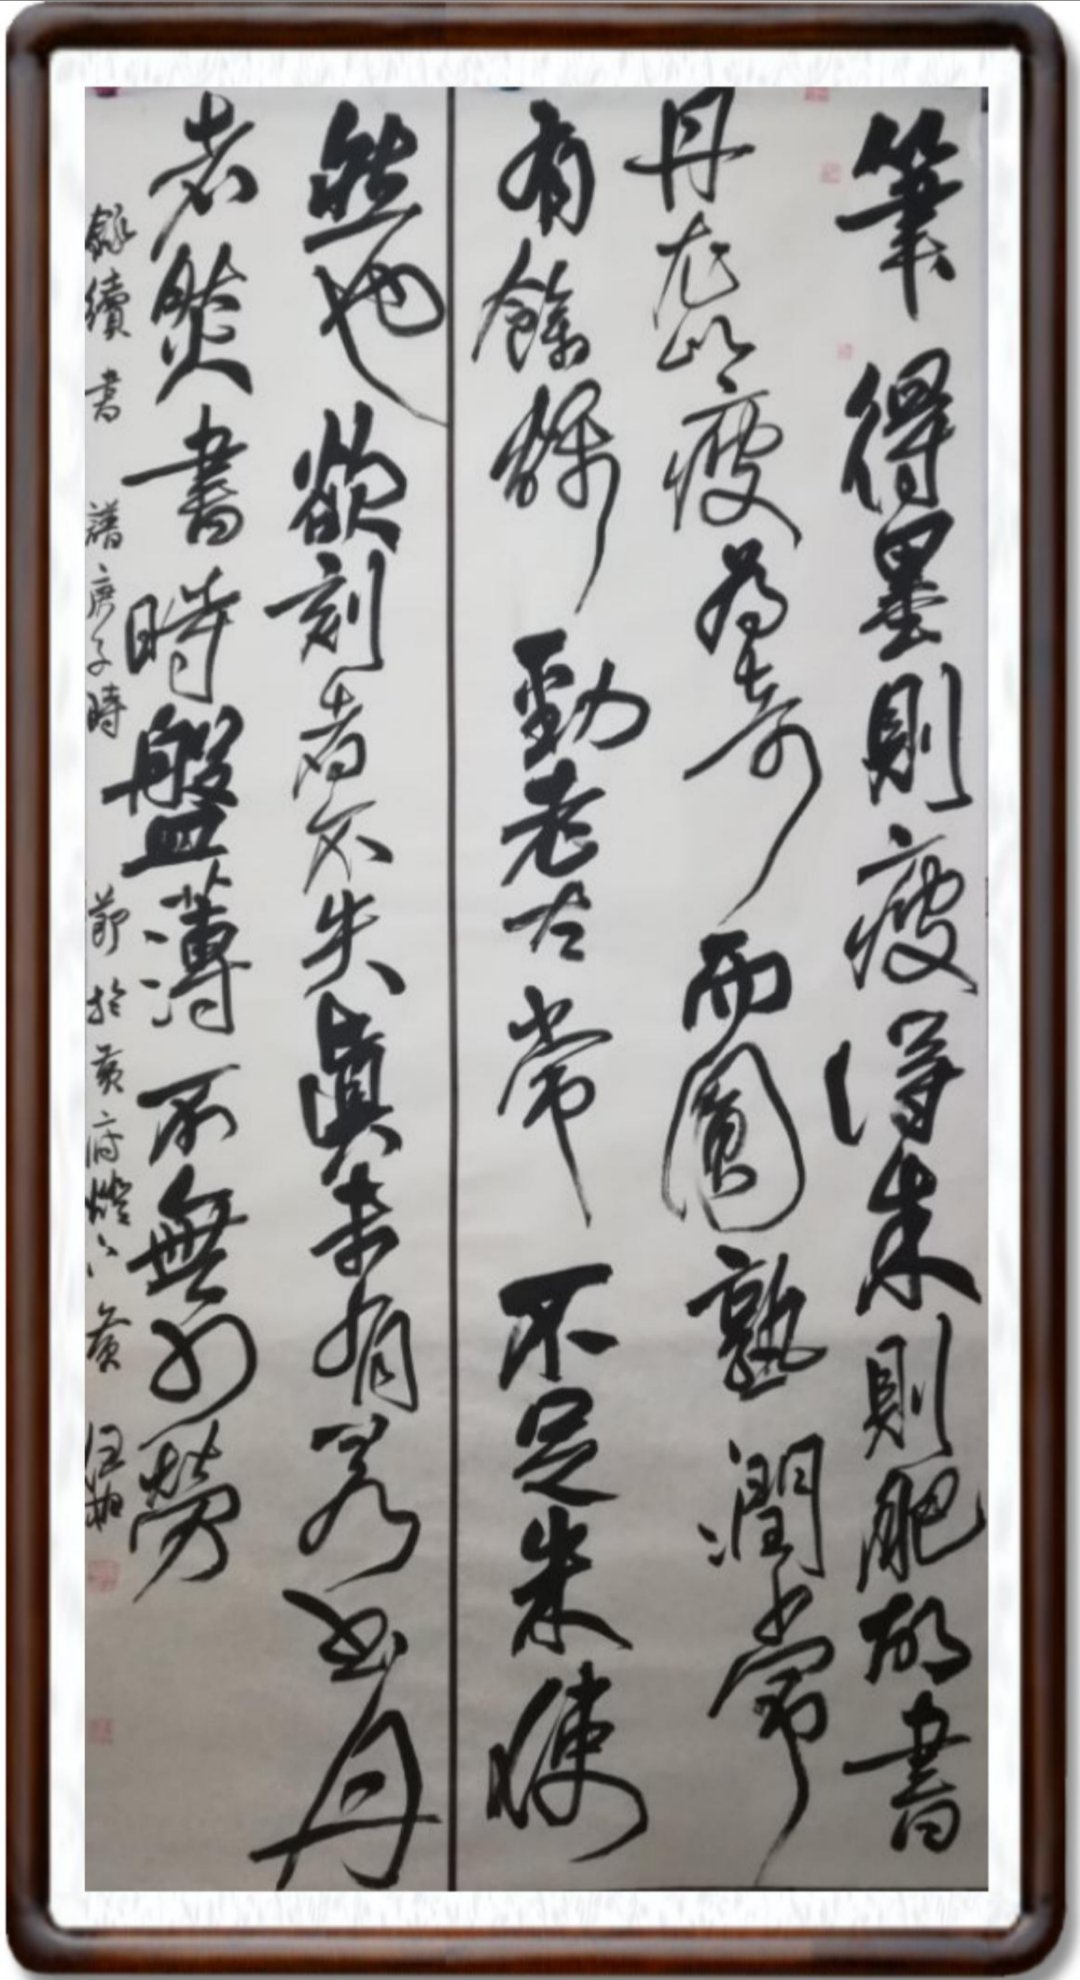 筆得墨則瘦得朱則肥故書
丹尤以瘦為奇而圓熟潤常
有餘燥勁老古常不足朱使
然也欲刻者不失真未有若书丹
者然書時盤薄不無少勞
錄續書譜庚子時節於黃府燈下黃